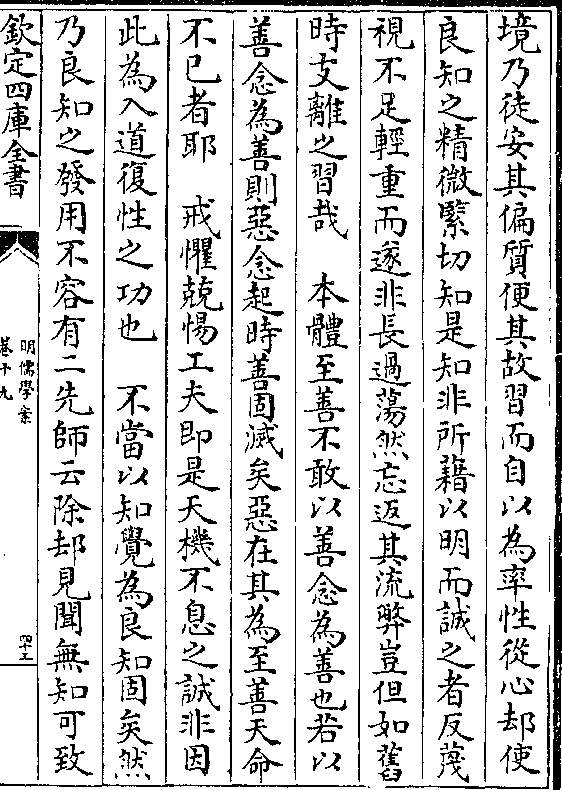 境乃徒安其偏質便其故習而自以為率性從心却使
良知之精微緊切知是知非所藉以明而誠之者反蔑
視不足輕重而遂非長過蕩然忘返其流弊豈但如舊
時支離之習哉 本體至善不敢以善念為善也若以
善念為善則惡念起時善固滅矣惡在其為至善天命
不已者耶 戒懼兢惕工夫即是天機不息之誠非因
此為入道復性之功也 不當以知覺為良知固矣然
乃良知之發用不容有二先師云除却見聞無知可致
欽定四庫全書
明儒學案
卷十九
四十五